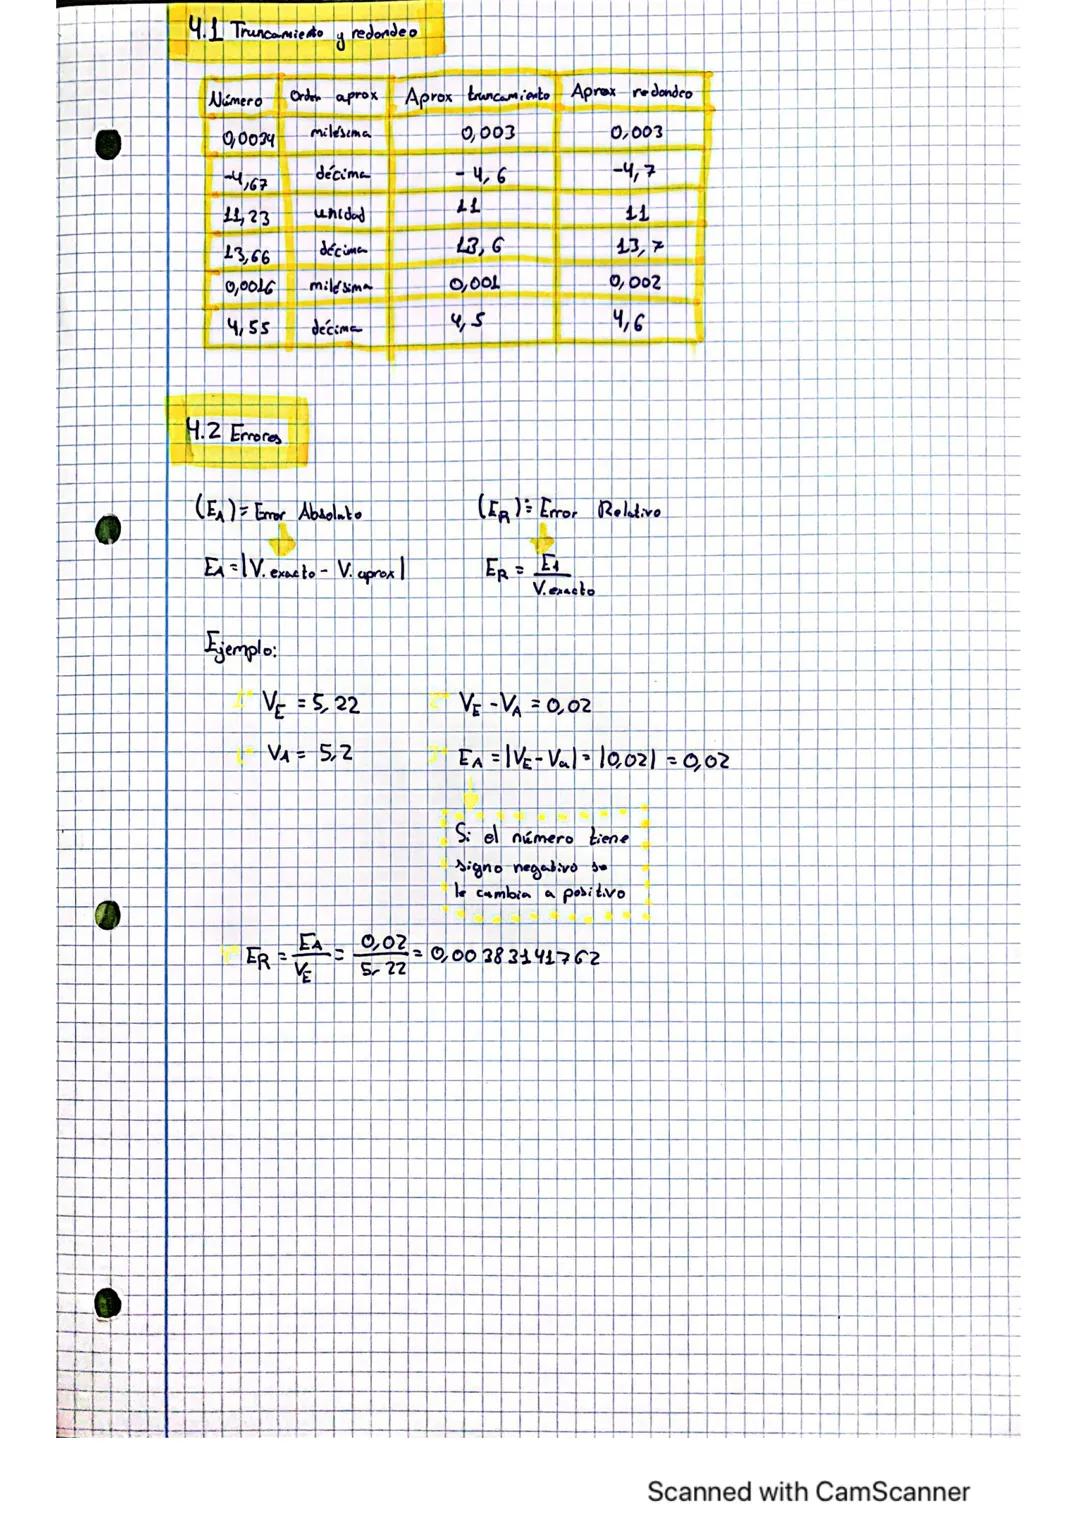 4.1 Truncamiento y redondeo
Número Orden aprox Aprox truncamiento Aprox redondeo
0,0034 milésima 0,003 0,003
-4,67 décima -4,6 -4,7
11,23 unidad 11 11
13,66 décima 13,6 13,7
0,0016 milésima 0,001 0,002
4,55 décima 4,5 4,6
4.2 Errores
(EA) = Error Absoluto (ER) = Error Relativo
EA = |V. exacto - V. aprox| ER = EA / V. exacto
Ejemplo:
VE = 5,22 VE - VA = 0,02
VA = 5,2 EA = |VE - Va| = |0,02| = 0,02
Si el número tiene
signo negativo se
le cambia a positivo
ER = EA / VE = 0,02 / 5,22 = 0,00383141762
Scanned with CamScanner